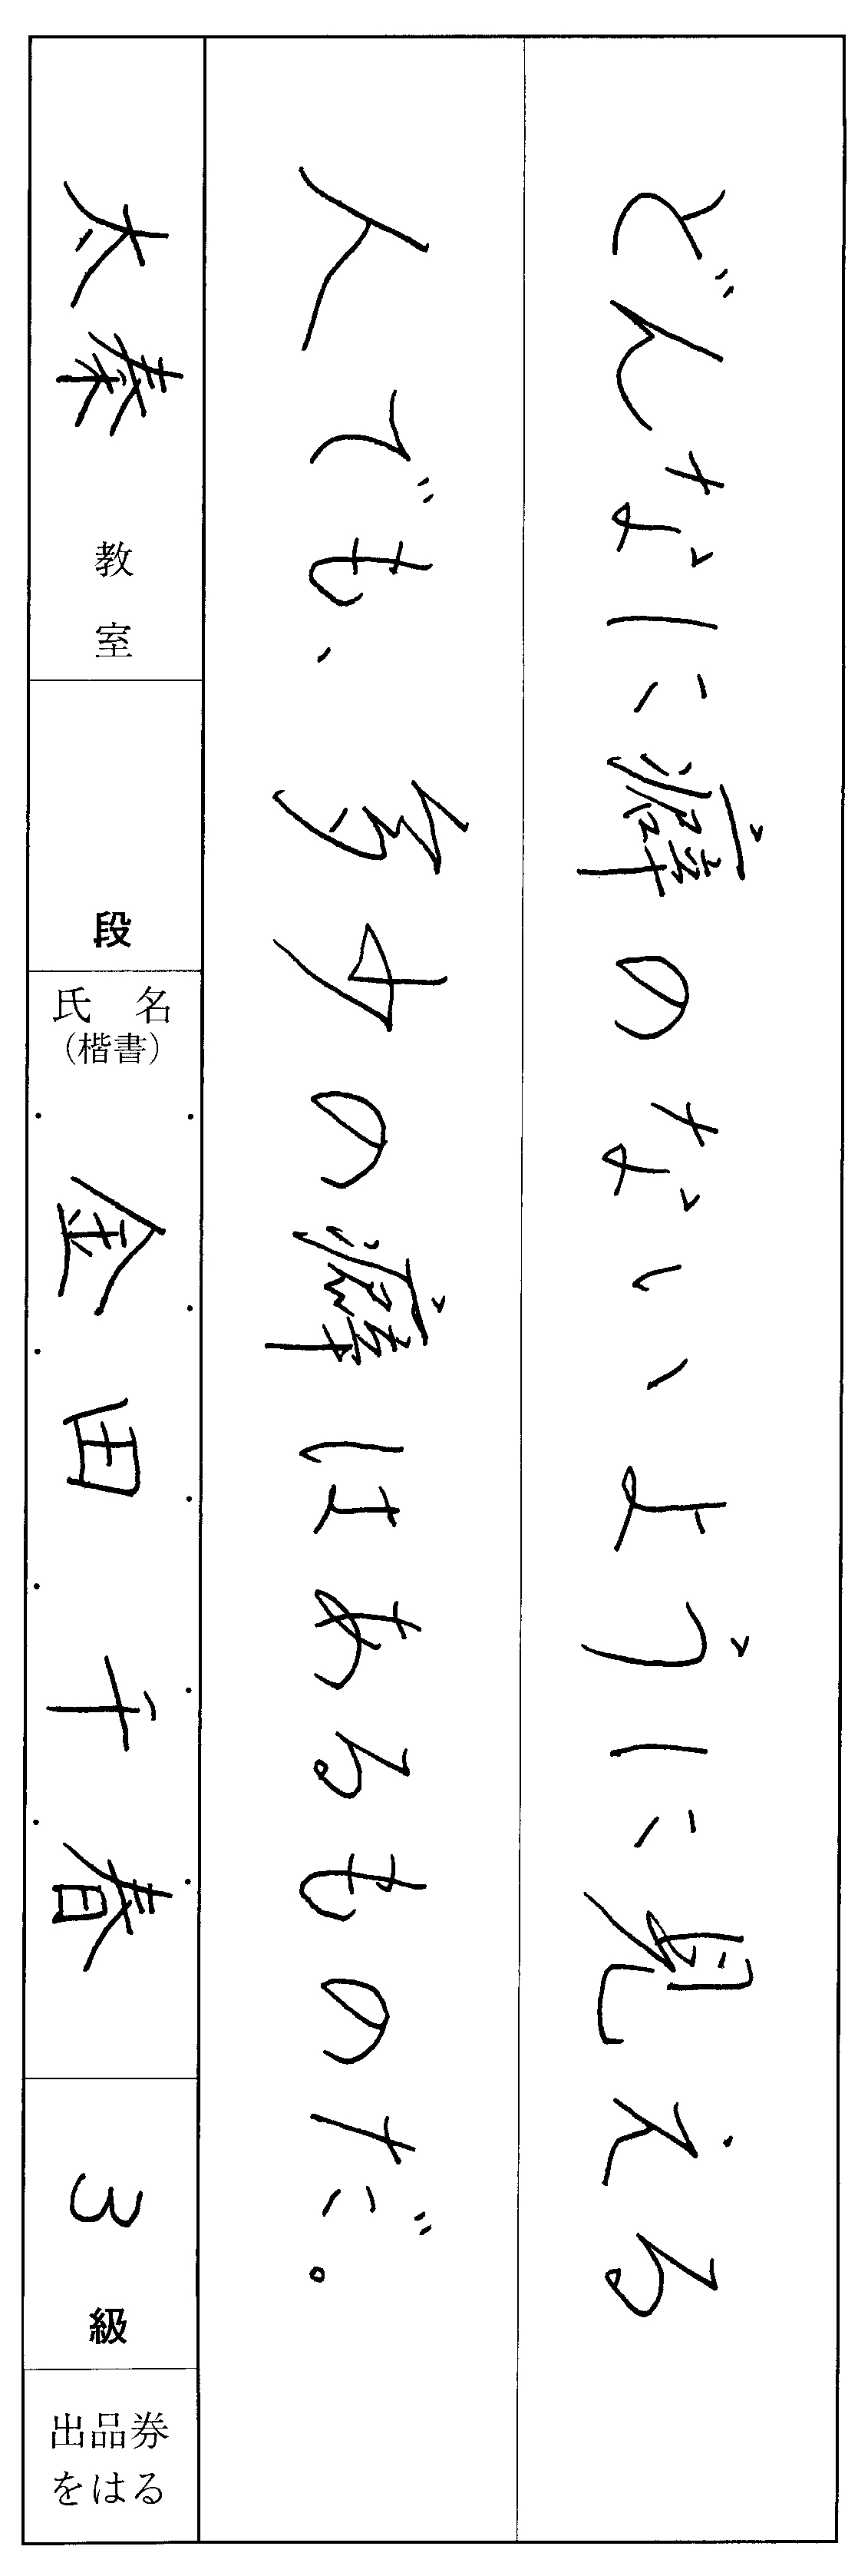 どんなに癖のないように見える
人でも、多少の癖はあるものだ。
太秦教室
段
氏名
(楷書)
金田千春
3級
出品券
をはる